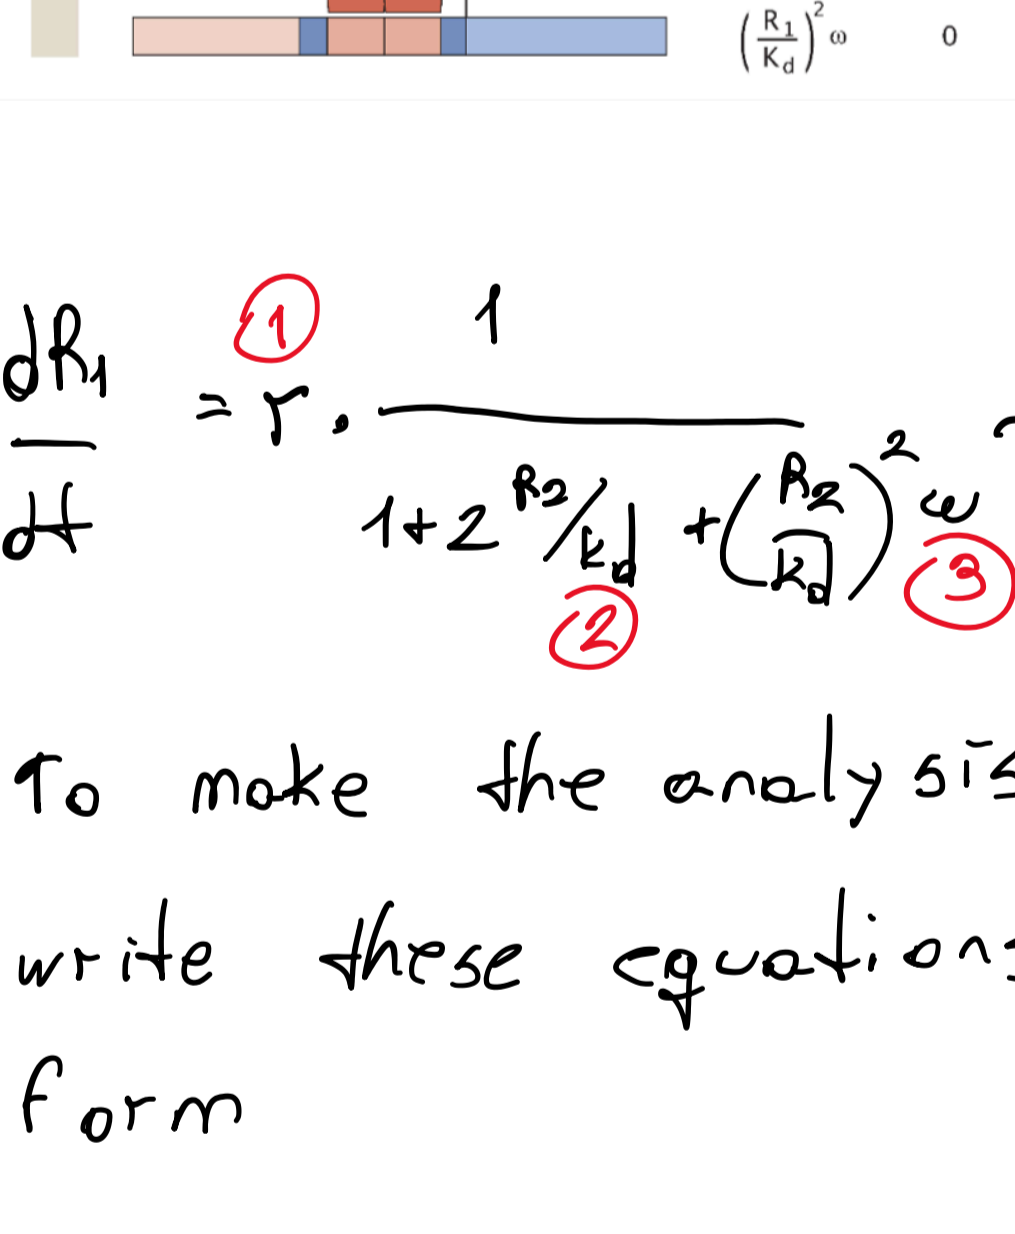 (R₁/K_d)² ω 0
①
dR₁/dt = r · 1/(1+2 R₂/k_d + (R₂/k_d)² ω
② ③
To make the analysis
write these equations
form